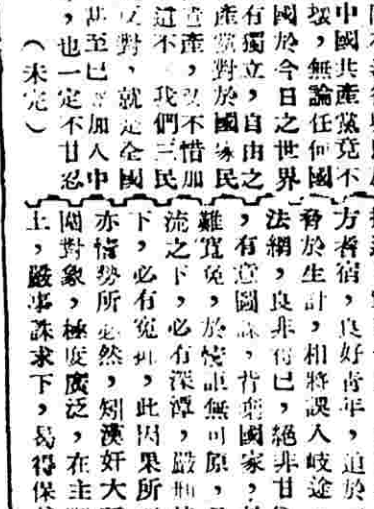 中國共產黨竟不
壞，無論任何國
國於今日之世界
有獨立，自由之
產黨對於國家民
產，不惜加
這不我們三民
反對，就是全國
甚至已加入中
，也一定不甘忍
（未完）
方耆宿，良好青年，迫於
脅於生計，相將誤入岐途
法網，良非得已，絕非甘
，有意圖謀，背棄國家，
難寬免，於情詎無可原，
流之下，必有深潭，嚴刑
下，必有冤抑，此因果所
亦情勢所必然，矧漢奸大
對象，極度廣泛，在主
上，嚴事誅求下，曷得保